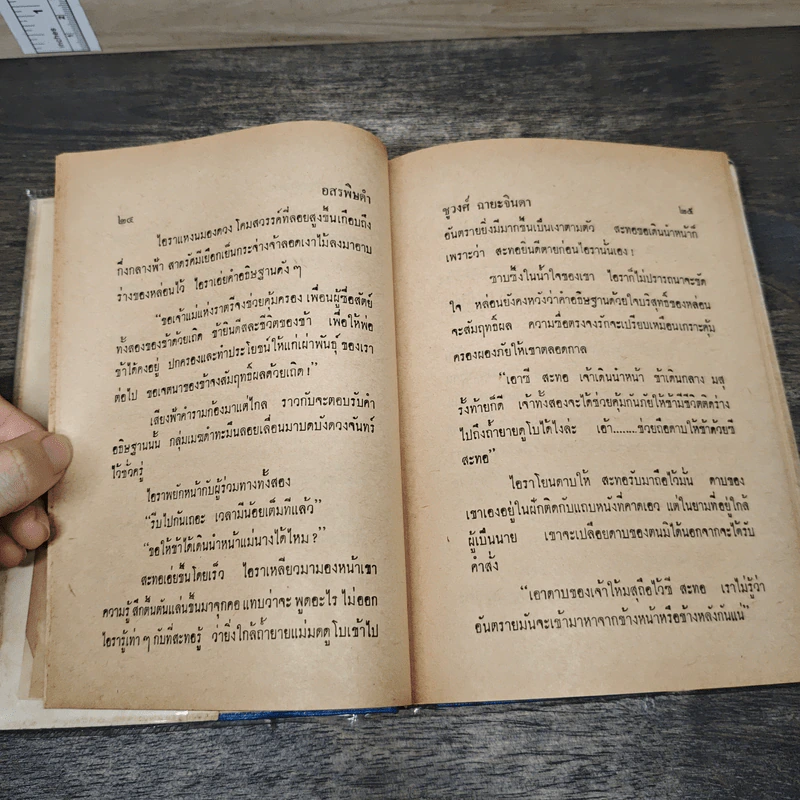 ๒๔
อสรพิษดำ
ไอราแหงนมองดวง โคมสวรรค์ที่ลอยสูงขึ้นเกือบถึง
กึ่งกลางฟ้า สาดรัศมีเยือกเย็นกระจ่างจ้าลอดเงาไม้ลงมาอาบ
ร่างของหล่อนไว้ ไอราเอ่ยคำอธิษฐานดัง ๆ
“ขอเจ้าแม่แห่งราตรีจงช่วยคุ้มครอง เพื่อนผู้ซื่อสัตย์
ทั้งสองของข้าด้วยเถิด ข้ายินดีสละชีวิตของข้า เพื่อให้พ่อ
ข้าได้คงอยู่ ปกครองและทำประโยชน์ให้แก่เผ่าพันธุ์ ของเรา
ต่อไป ขอเจตนาของข้าจงสัมฤทธิ์ผลด้วยเถิด !”
เสียงฟ้าคำรามก้องมาแต่ไกล ราวกับจะตอบรับคำ
อธิษฐานนั้น กลุ่มเมฆดำทะมึนลอยเลื่อนมาบดบังดวงจันทร์
ไว้ชั่วครู่
ไอราพยักหน้ากับผู้ร่วมทางทั้งสอง
“รีบไปกันเถอะ เวลามีน้อยเต็มทีแล้ว”
“ขอให้ข้าได้เดินนำหน้าแม่นางได้ไหม ?”
สะทอเอ่ยขึ้นโดยเร็ว ไอราเหลียวมามองหน้าเขา
ความรู้สึกตื้นตันแล่นขึ้นมาจุกคอ แทบว่าจะ พูดอะไร ไม่ออก
ไอรารู้เท่า ๆ กับที่สะทอรู้ ว่ายิ่งใกล้ถ้ำยายแม่มดดูโบเข้าไป
ชูวงศ์ ฉายะจินดา
๒๕
อันตรายยิ่งมีมากขึ้นเป็นเงาตามตัว สะทอขอเดินนำหน้าก็
เพราะว่า สะทอยินดีตายก่อนไอรานั่นเอง !
ซาบซึ้งในน้ำใจของเขา ไอราก็ไม่ปรารถนาจะขัด
ใจ หล่อนยังคงหวังว่าคำอธิษฐานด้วยใจบริสุทธิ์ของหล่อน
จะสัมฤทธิ์ผล ความซื่อตรงจงรักจะเปรียบเหมือนเกราะคุ้ม
ครองผองภัยให้เขาตลอดกาล
“เอาซี สะทอ เจ้าเดินนำหน้า ข้าเดินกลาง มสุ
รั้งท้ายก็ดี เจ้าทั้งสองจะได้ช่วยคุ้มกันภัยให้ข้ามีชีวิตติดร่าง
ไปถึงถ้ำยายดูโบได้ไงล่ะ เอ้า........ช่วยถือดาบให้ข้าด้วยซี
สะทอ”
ไอราโยนดาบให้ สะทอรับมาถือไว้มั่น ดาบของ
เขาเองอยู่ในฝักติดกับแถบหนังที่คาดเอว แต่ในยามที่อยู่ใกล้
ผู้เป็นนาย เขาจะเปลือยดาบของตนมิได้นอกจากจะได้รับ
คำสั่ง
“เอาดาบของเจ้าให้มสุถือไว้ซี สะทอ เราไม่รู้ว่า
อันตรายมันจะเข้ามาหาจากข้างหน้าหรือข้างหลังกันแน่”